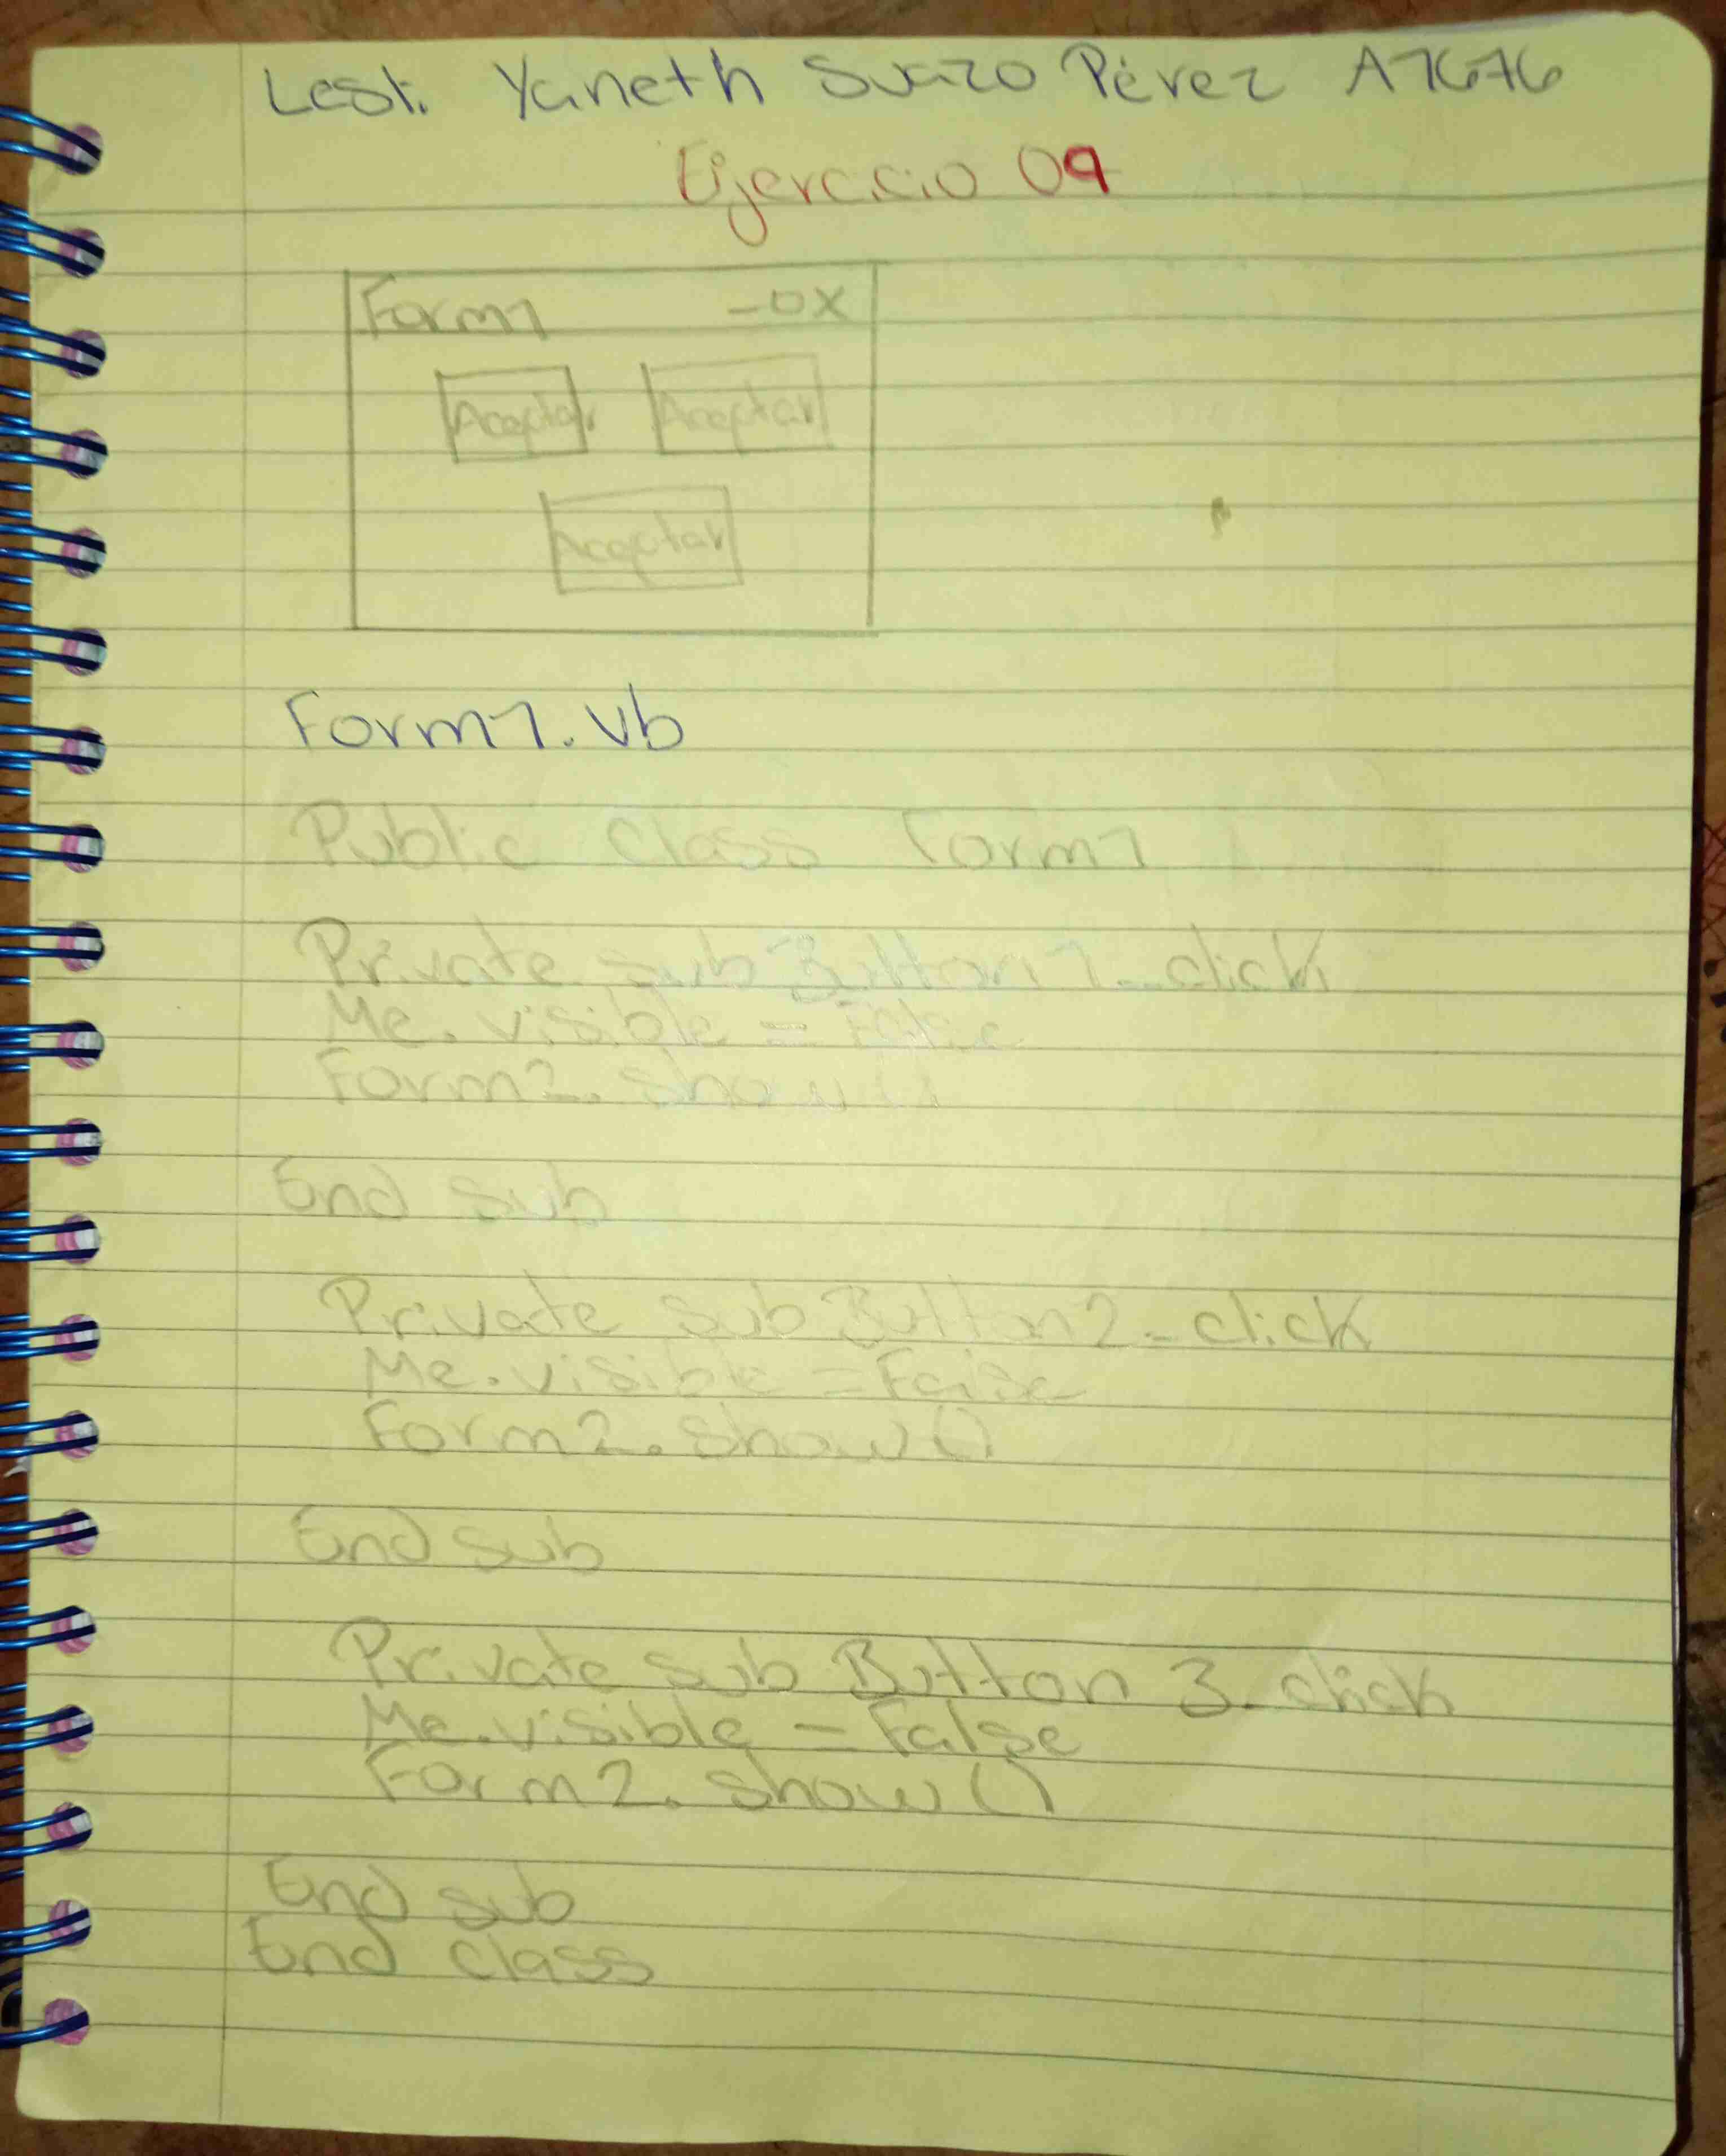 Lest. Yaneth Suazo Pérez A7676
Ejercicio 09
Form1 -oX
Aceptar Aceptar
Aceptar
Form1.vb
Public Class Form1
Private sub Button1_click
Me.visible = False
Form2.show()
End sub
Private sub Button2_click
Me.visible = False
Form2.show()
End sub
Private sub Button 3_click
Me.visible = False
Form2.show()
End sub
End class